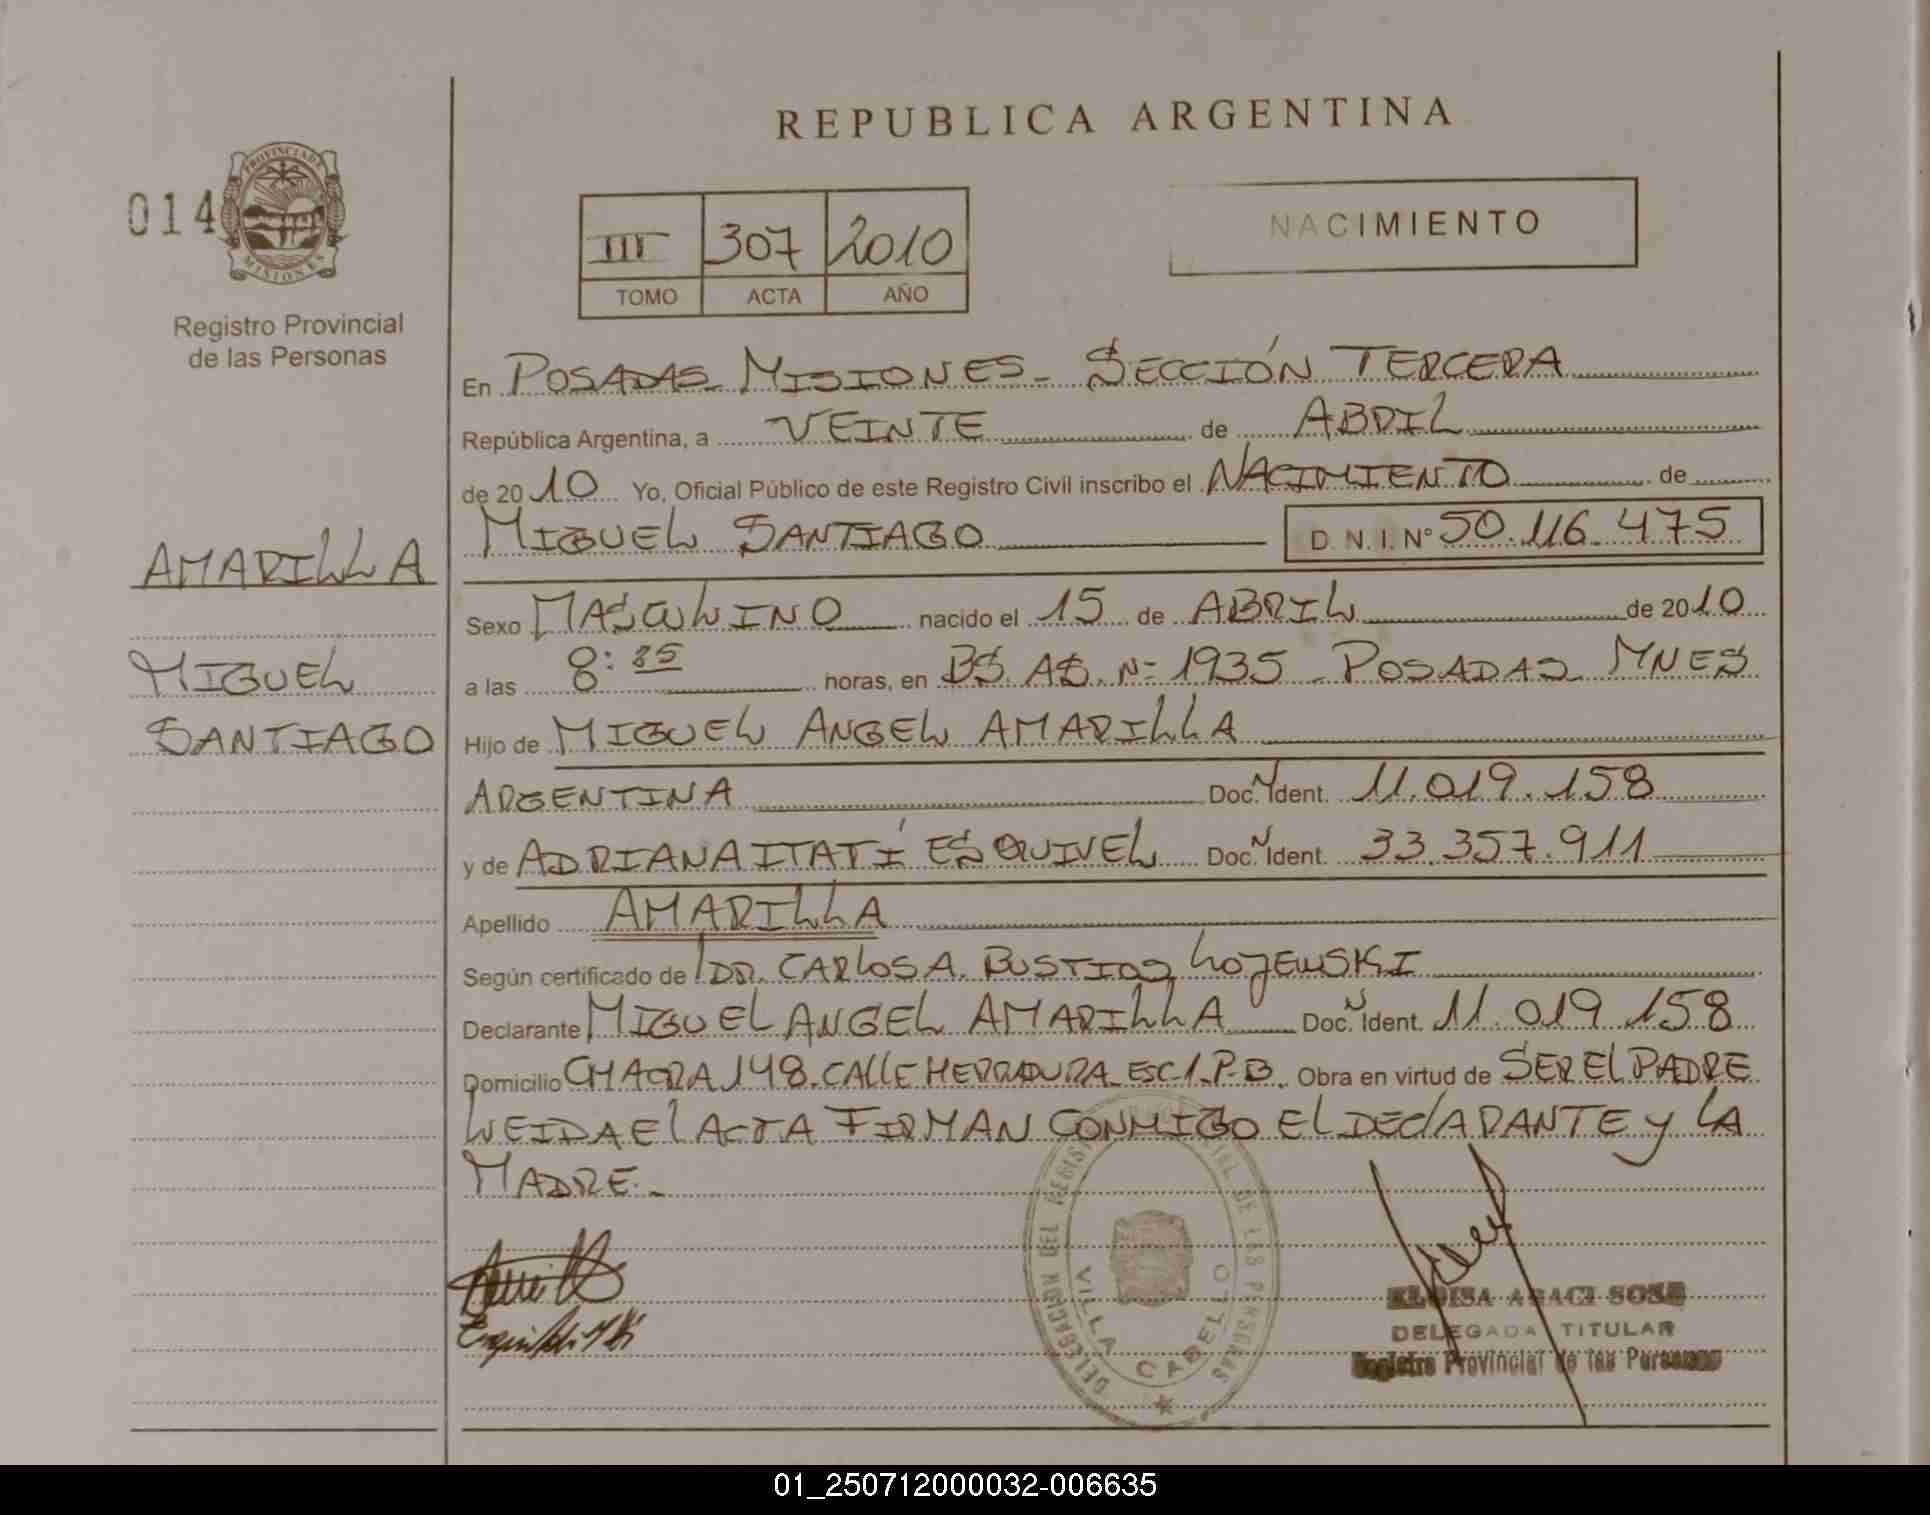 REPUBLICA ARGENTINA
014
PROVINCIA DE MISIONES
Registro Provincial
de las Personas
III 307 2010
TOMO ACTA AÑO
NACIMIENTO
En POSADAS MISIONES - SECCIÓN TERCERA
República Argentina, a VEINTE de ABRIL
de 2010 Yo, Oficial Público de este Registro Civil inscribo el NACIMIENTO de
MIGUEL SANTIAGO D.N.I.Nº 50.116.475
AMARILLA
MIGUEL
SANTIAGO
Sexo MASCULINO nacido el 15 de ABRIL de 2010
a las 8:35 horas, en BS. AS. Nº 1935 - POSADAS MNES
Hijo de MIGUEL ANGEL AMARILLA
ARGENTINA Doc. N Ident. 11.019.158
y de ADRIANA ITATÍ ESQUIVEL Doc. N Ident. 33.357.911
Apellido AMARILLA
Según certificado de DR. CARLOS A. BUSTIOS LOJEWSKI
Declarante MIGUEL ANGEL AMARILLA Doc. N Ident. 11.019.158
Domicilio CHACRA 148. CALLE HERRADURA ESC 1. P.B. Obra en virtud de SER EL PADRE
LEIDA EL ACTA FIRMAN CONMIGO EL DECLARANTE Y LA
MADRE.-
DELEGACION DEL REGISTRO PROVINCIAL DE LAS PERSONAS
VILLA CABELLO
ELOISA ARACI SOSA
DELEGADA TITULAR
Registro Provincial de las Personas
01_250712000032-006635